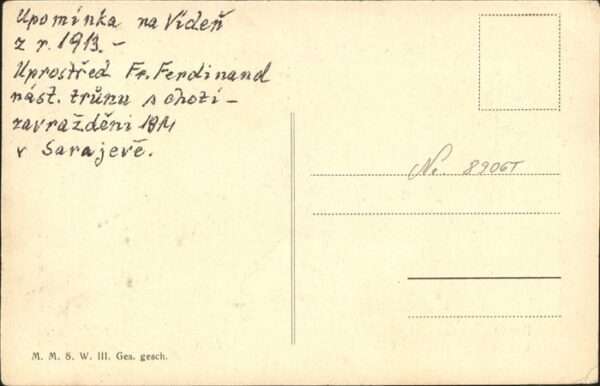 Upomínka na Vídeň
z r. 1913. –
Uprostřed Fr. Ferdinand
nást. trůnu s chotí –
zavražděni 1914
v Sarajevě.
No. 8906T
M. M. S. W. III. Ges. gesch.